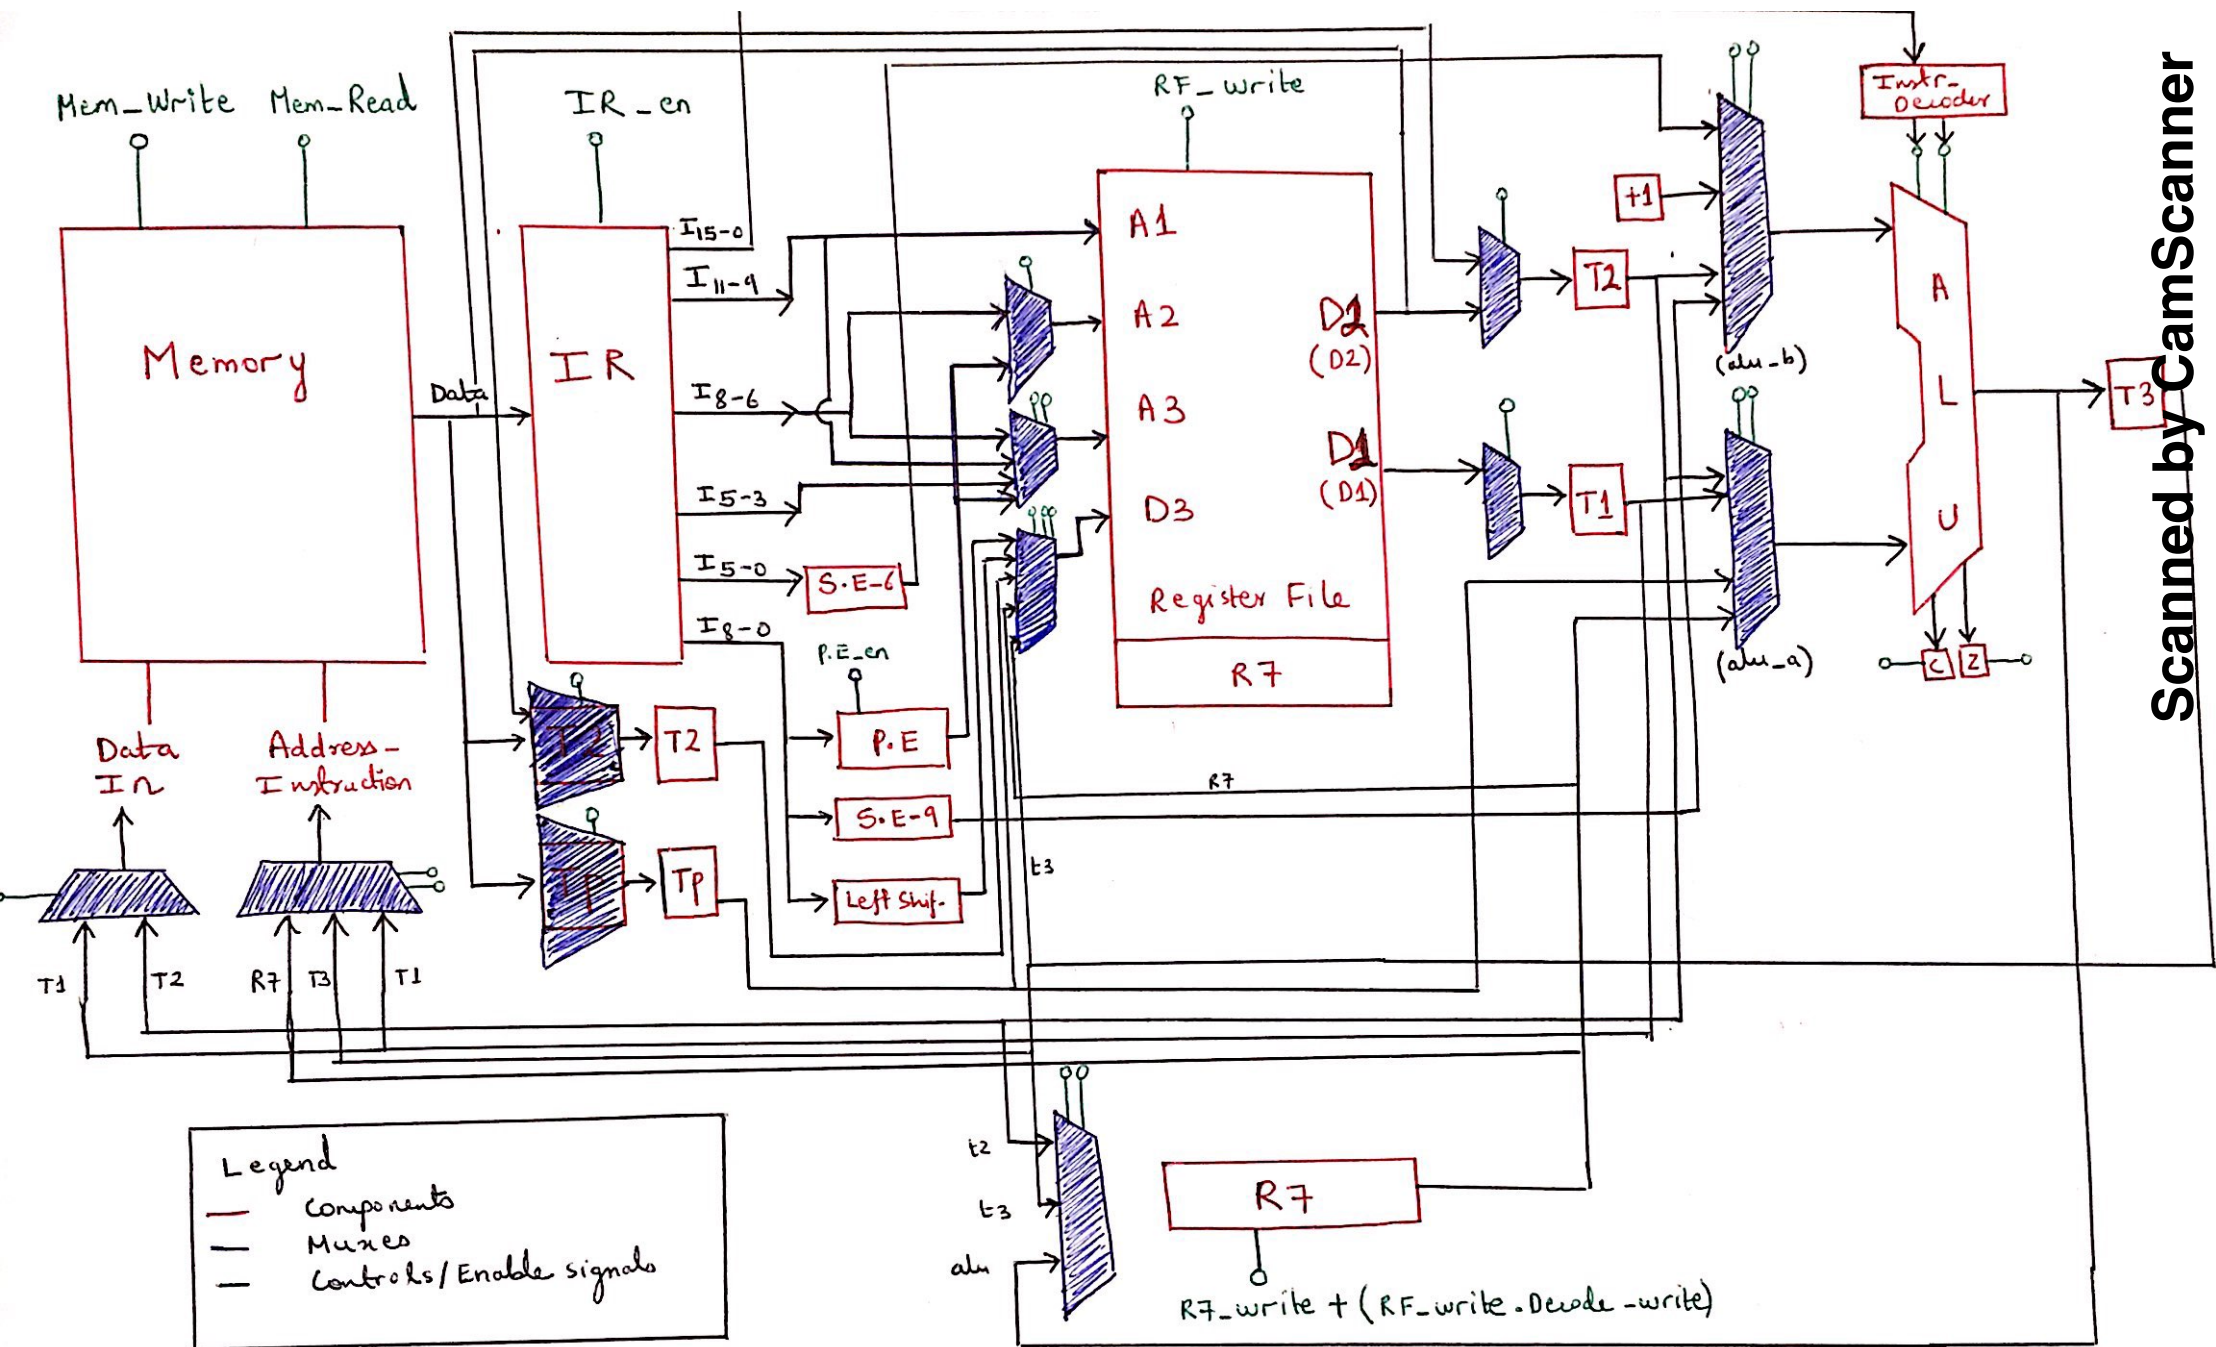 Mem_Write
Mem_Read
IR_en
RF_write
Instr_
Decoder
Memory
Data
IR
I15-0
I11-9
I8-6
I5-3
I5-0
I8-0
S.E-6
P.E_en
P.E
S.E-9
Left Shif.
A1
A2
A3
D3
D1
(D2)
D1
(D1)
Register File
R7
+1
T2
T1
(alu_b)
(alu_a)
A
L
U
T3
C
Z
Data
In
Address-
Instruction
T2
T2
Tp
Tp
R7
t3
T1
T2
R7
T3
T1
t2
t3
alu
R7
R7_write + (RF_write.Decode_write)
Legend
Components
Muxes
Controls/Enable signals
Scanned by CamScanner